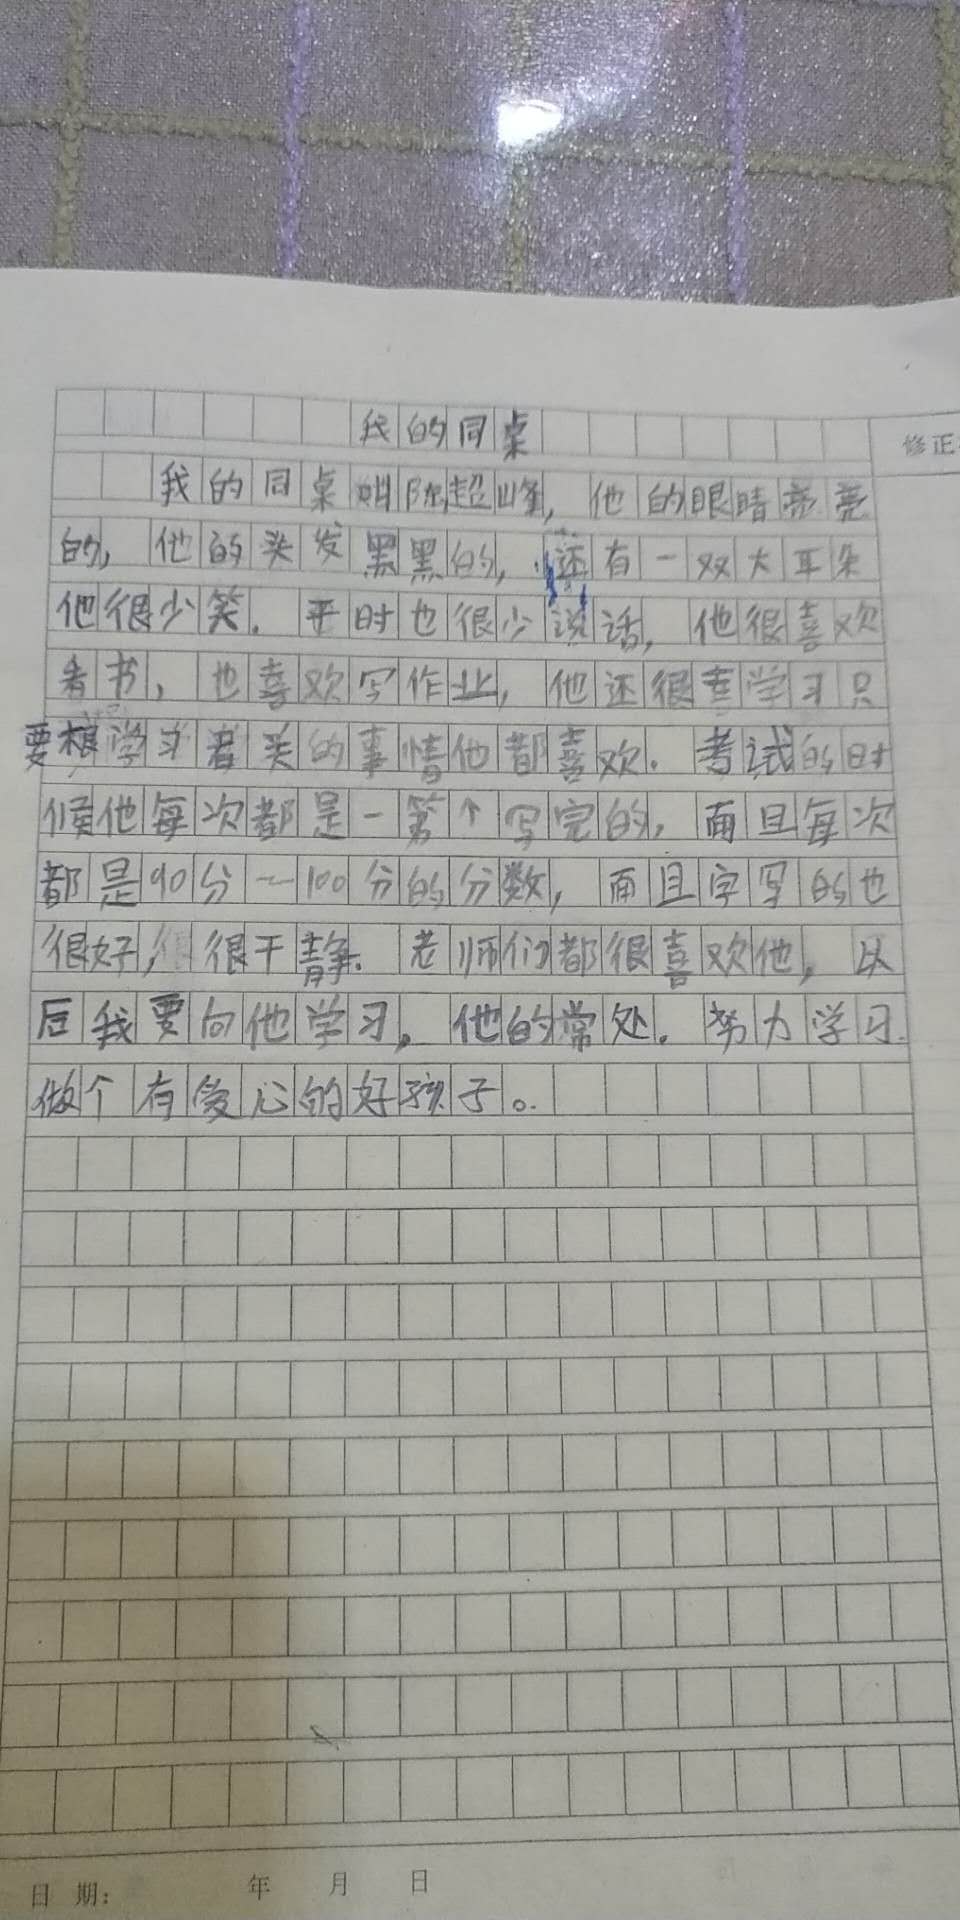 我的同桌
修正
我的同桌姓陈超峰，他的眼睛亮亮
的，他的头发黑黑的，还有一双大耳朵
他很少笑．平时也很少说话，他很喜欢
看书，也喜欢写作业，他还很喜学习只
要根学习着关的事情他都喜欢．考试的时
候他每次都是一第个写完的，而且每次
都是90分一100分的分数，而且字写的也
很好，很干静．老师们都很喜欢他，以
后我要向他学习，他的常处．努力学习．
做个有爱心的好孩子。
日 期： 年 月 日